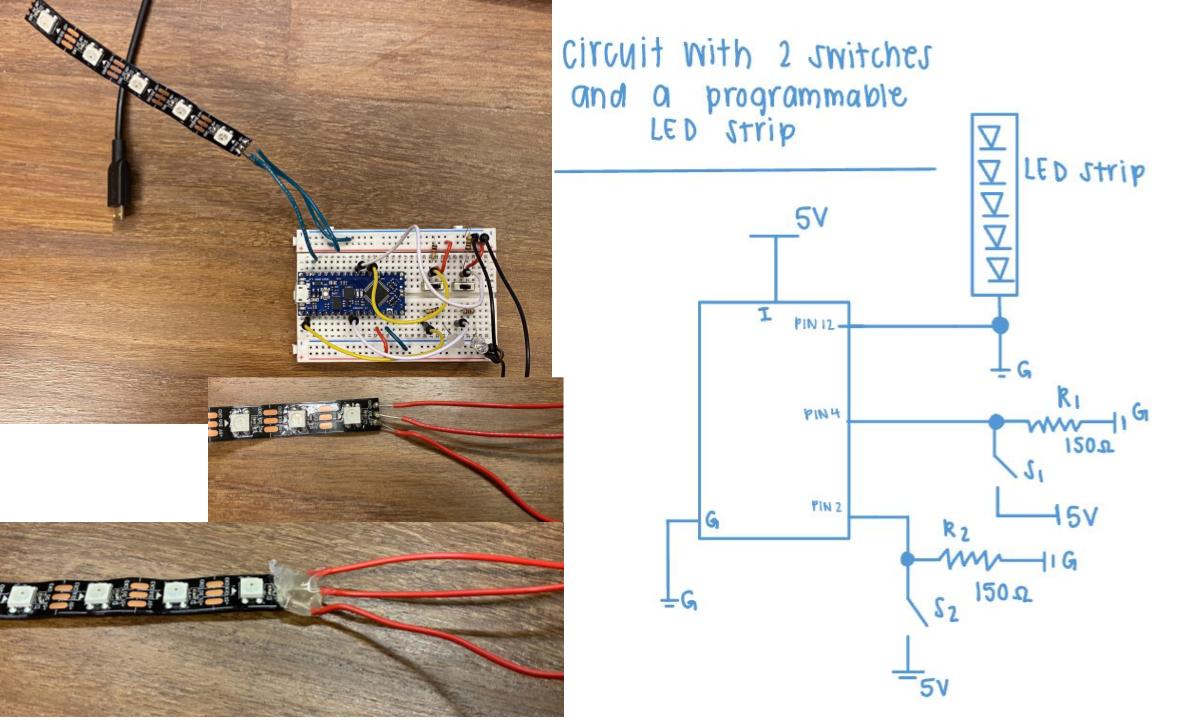 circuit with 2 switches
and a programmable
LED strip
LED strip
5V
I
PIN 12
G
PIN 4
R1
G
150Ω
S1
5V
PIN 2
G
R2
G
150Ω
G
S2
5V